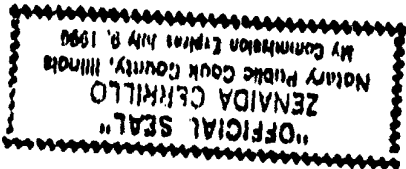 "OFFICIAL SEAL"
ZENAIDA CERRILLO
Notary Public Cook County, Illinois
My Commission Expires July 9, 1990